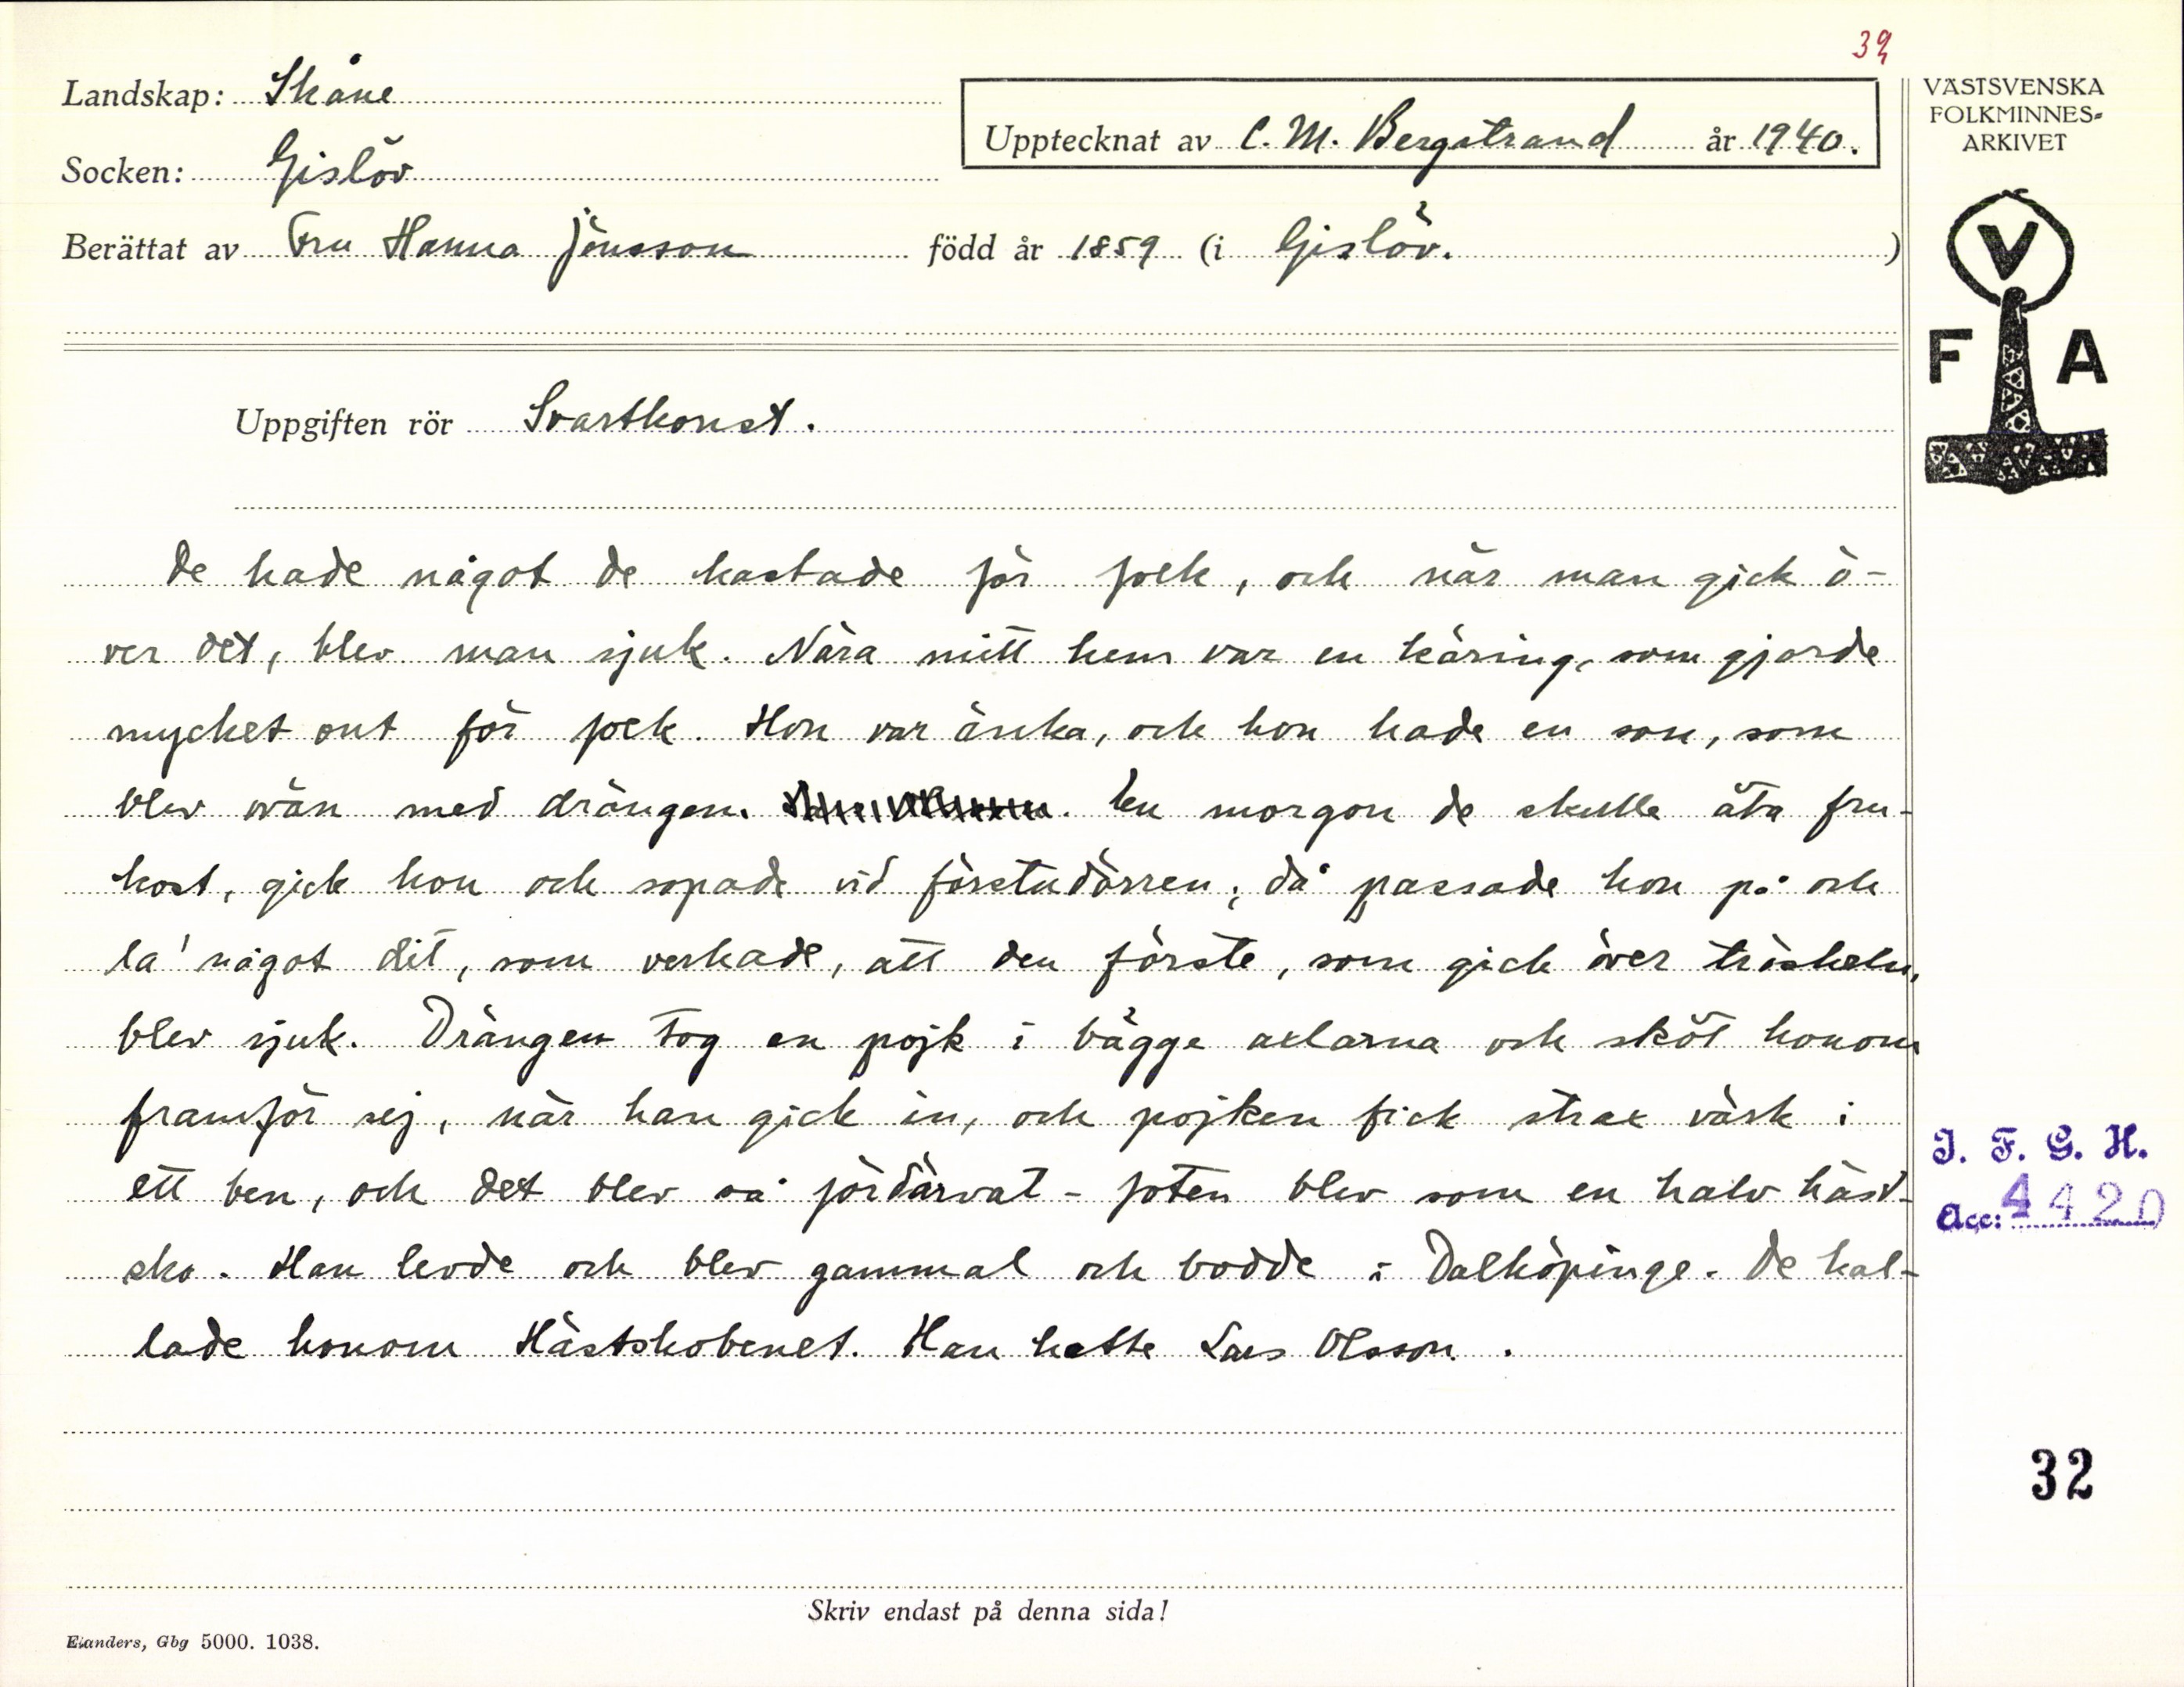 39
Landskap: Skåne
VÄSTSVENSKA
FOLKMINNES-
ARKIVET
Upptecknat av C. M. Bergstrand år 1940.
Socken: Gislöv
Berättat av Fru Hanna Jönsson född år 1859 (i Gislöv. )
V
F A
Uppgiften rör Svartkonst.
De hade något de kastade för folk, och när man gick ö-
ver det, blev man sjuk. Nära mitt hem var en käring, som gjorde
mycket ont för folk. Hon var änka, och hon hade en son, som
blev ovän med drängen. En morgon de skulle äta fru-
kost, gick hon och sopade vid förstudörren; då passade hon på och
la' något dit, som verkade, att den förste, som gick över tröskeln,
blev sjuk. Drängen tog en pojk i bägge axlarna och sköt honom
framför sej, när han gick in, och pojken fick strax värk i
ett ben, och det blev så fördärvat - foten blev som en halv häst-
sko. Han levde och blev gammal och bodde i Dalköpinge. De kal-
lade honom Hästskobenet. Han hette Lars Olsson.
I. F. G. H.
Acc: 4420
32
Skriv endast på denna sida!
Elanders, Gbg 5000. 1038.